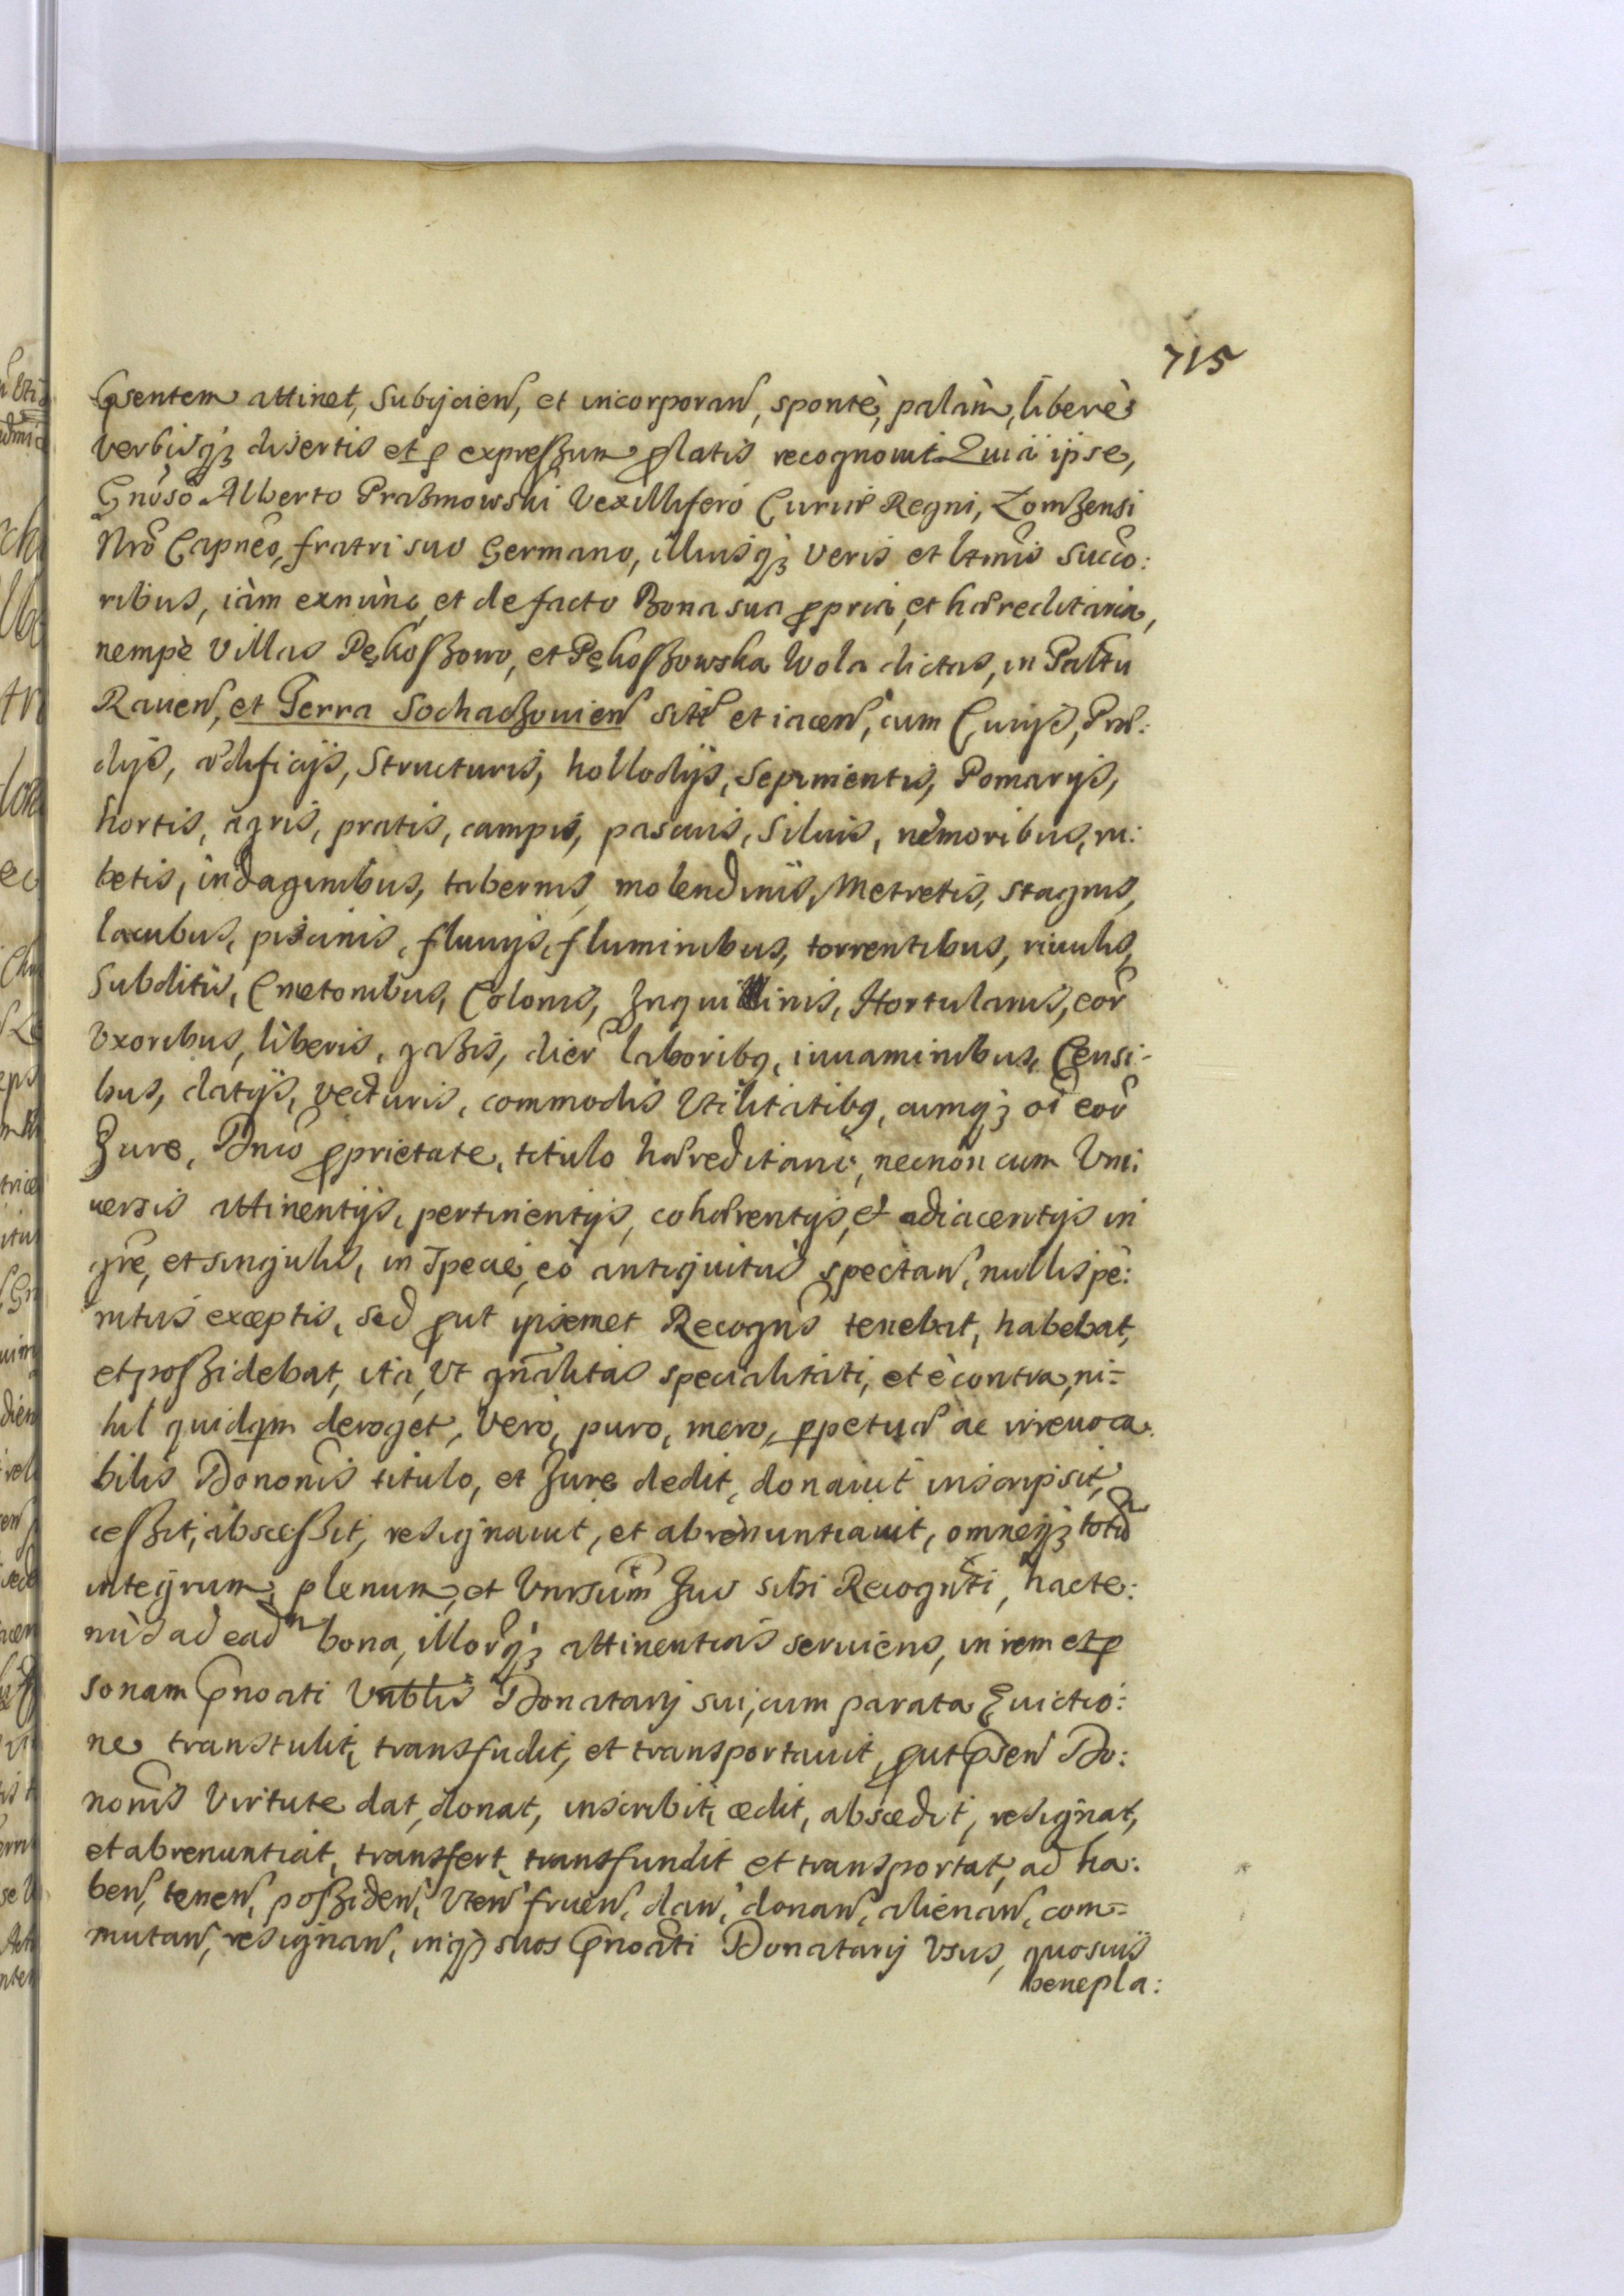 715
Psentem attinet, subijcien, et incorporan, spontè, palàm, liberè
verbisq₃ disertis et p expressum platis recognovit Quià ipse,
Gnoso Alberto Prażmowski Vexillifero Curiæ Regni, Łomżensi
Nro Capneo, fratri suo Germano, illiusq₃ veris et ltmis succo:
ribus, iàm exnùnc, et de facto Bona sua ppria, et hæreditaria,
nempè Villas Pękoszowo, et Pękoszowska Wola dictas, in Paltu
Raven, et Terra Sochaczouien sitæ et iacen, cum Curijs, Præ:
dijs, ædificijs, Structuris, hollodijs, Sepimentis, Pomarijs,
hortis, agris, pratis, campis, pascuis, Siluis, nemoribus, ru:
betis, indaginibus, tabernis, molendinis, Metretis, stagnis,
lacubus, piscinis, fluuijs, fluminibus, torrentibus, riuulis,
Subditis, Cmetonibus, Colonis, Inquilinis, Hortulanis, eor
Vxoribus, liberis, gazis, dier laboribq, iuuaminibus, Censi-
bus, datijs, vecturis, commodis Vtilitatibq, cumq₃ oi eor
Jure, Dnio pprietate, titulo hæreditario, necnon cum Vni:
uersis attinentijs, pertinentijs, cohærentijs, et adiacentijs in
gre, et singulis, in specie, eò antiquitus spectan, nullis pe:
nitus exceptis, sed put ipsemet Recogns tenebat, habebat,
et possidebat, ita, Vt gnalitas specialitati, et è contra, ni=
hil quidqm deroget, Vero, puro, mero, ppetuæ ac irreuoca:
bilis Dononis titulo, et Jure dedit, donauit inscripsit,
cessit, abscessit, resignauit, et abrenuntiauit, omneq₃ totu
integrum, plenum, et Vnrsum Jus sibi Recognti, hacte:
nùs ad ead bona, illorq₃ attinentias seruiens, in rem et p
sonam pnoati Donatarij sui, cum parata Euictio:
ne transtulit, transfudit, et transportauit, put psen Do:
nonis Virtute dat, donat, inscribit, cedit, abscedit, resignat,
et abrenuntiat, transfert, transfundit et transportat, ad ha:
ben, tenen, possiden, Vten fruen, dan, donan, alienan, com=
mutan, resignan, inq₃ suos pnoati Donatarij Vsus, quosuis
benepla: